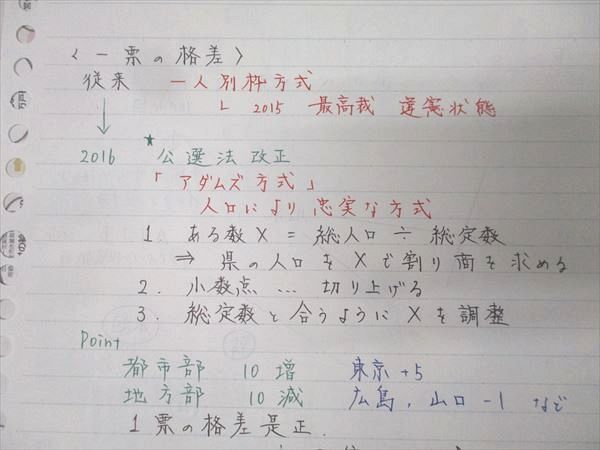 〈一票の格差〉
従来 一人別枠方式
└ 2015 最高裁 違憲状態
↓
2016 ★公選法改正
「アダムズ方式」
人口により忠実な方式
1 ある数X = 総人口 ÷ 総定数
⇒ 県の人口をXで割り商を求める
2. 小数点 … 切り上げる
3. 総定数と合うようにXを調整
Point
都市部 10増 東京+5
地方部 10減 広島, 山口-1 など
1票の格差是正.